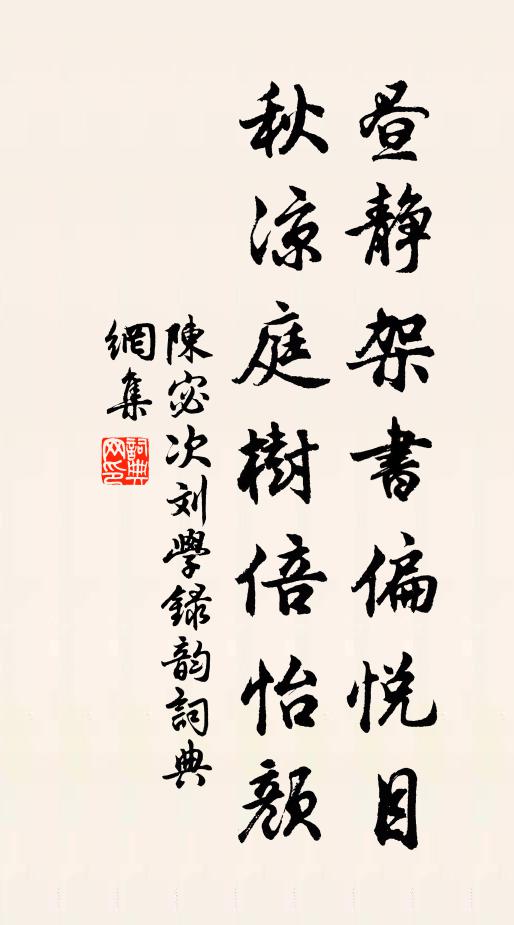 昼静架書偏悦目
秋凉庭樹倍怡顔
陳宓次刘學録韵詞典
網集
詞典網印